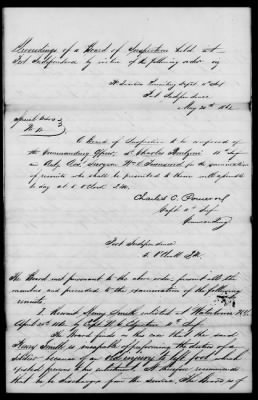 Proceedings of a Board of Inspection held at
Fort Independence by virtue of the following order viz
Fort Independence
May 20th 186
Special Orders
No.
A Board of Inspection to be composed of
the Commanding Officer, Lt Charles 11" Inf
Surgeon Wm Townsend for the examination
of recruits who shall be presented to them will assemble
to day at 5 O'Clock P.M.
Charles C. Pomeroy
Capt 11" Inf
Commanding
Fort Independence
5 O'Clock P.M.
The Board met pursuant to the above order, present all the
members and proceeded to the examination of the following
recruits
1. Recruit Henry Smith enlisted at
April by Capt 11" Inf
The Board in this case that the said
Henry Smith is incapable of performing the duties of a
soldier because of an old injury to left foot which
existed previous to his enlistment. It therefore recommends
that he be discharged from the service. The Board is of